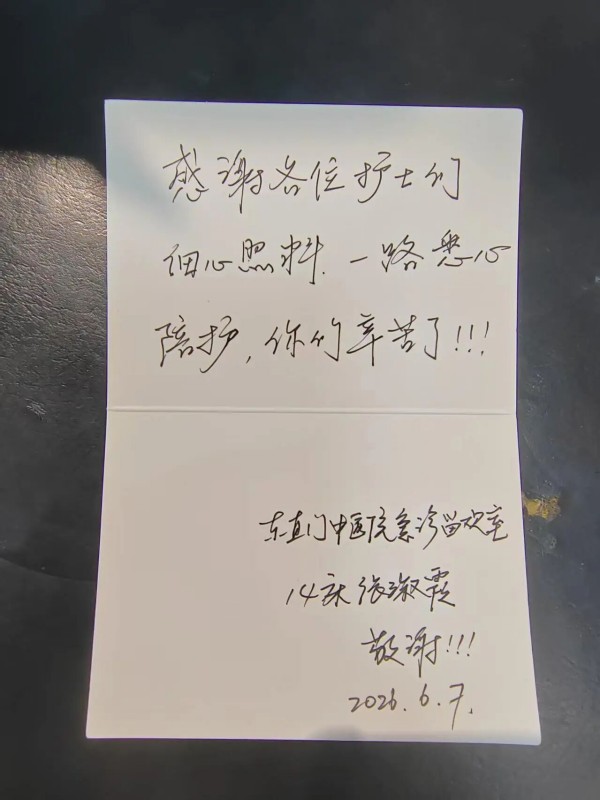 感谢各位护士们
细心照料.一路悉心
陪护,你们辛苦了!!!
东直门中医院急诊留观室
14床张淑霞
敬谢!!!
2026.6.7.